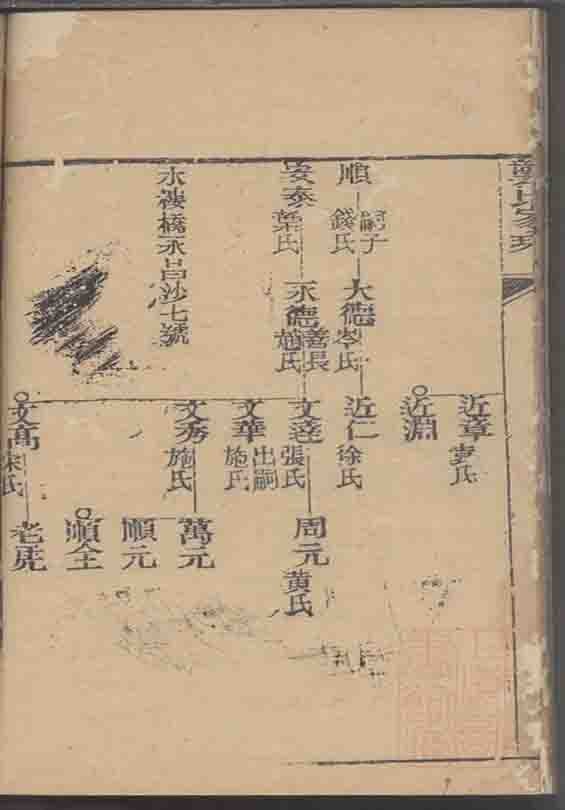 近章
袁氏
近淵
順
嗣子
錢氏
大德
岑氏
近仁
徐氏
安泰
葉氏
永德
善長
趙氏
文達
張氏
周元
黃氏
文華
出嗣
施氏
文秀
施氏
萬元
順元
順全
文高
宋氏
老虎
橋永昌沙七號